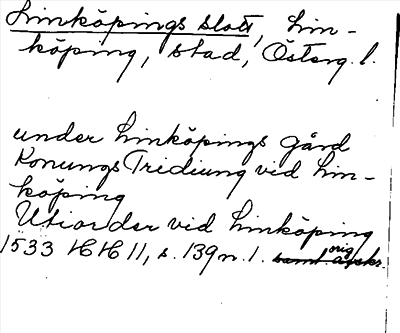 Linköpings slott, Lin-
köping, stad, Österg. l.
under Linköpings gård
Konungs Tridiung vid Lin-
köping
Utiorder vid Linköping
1533 HH 11, s. 139 n. 1. samt orig. avskr.